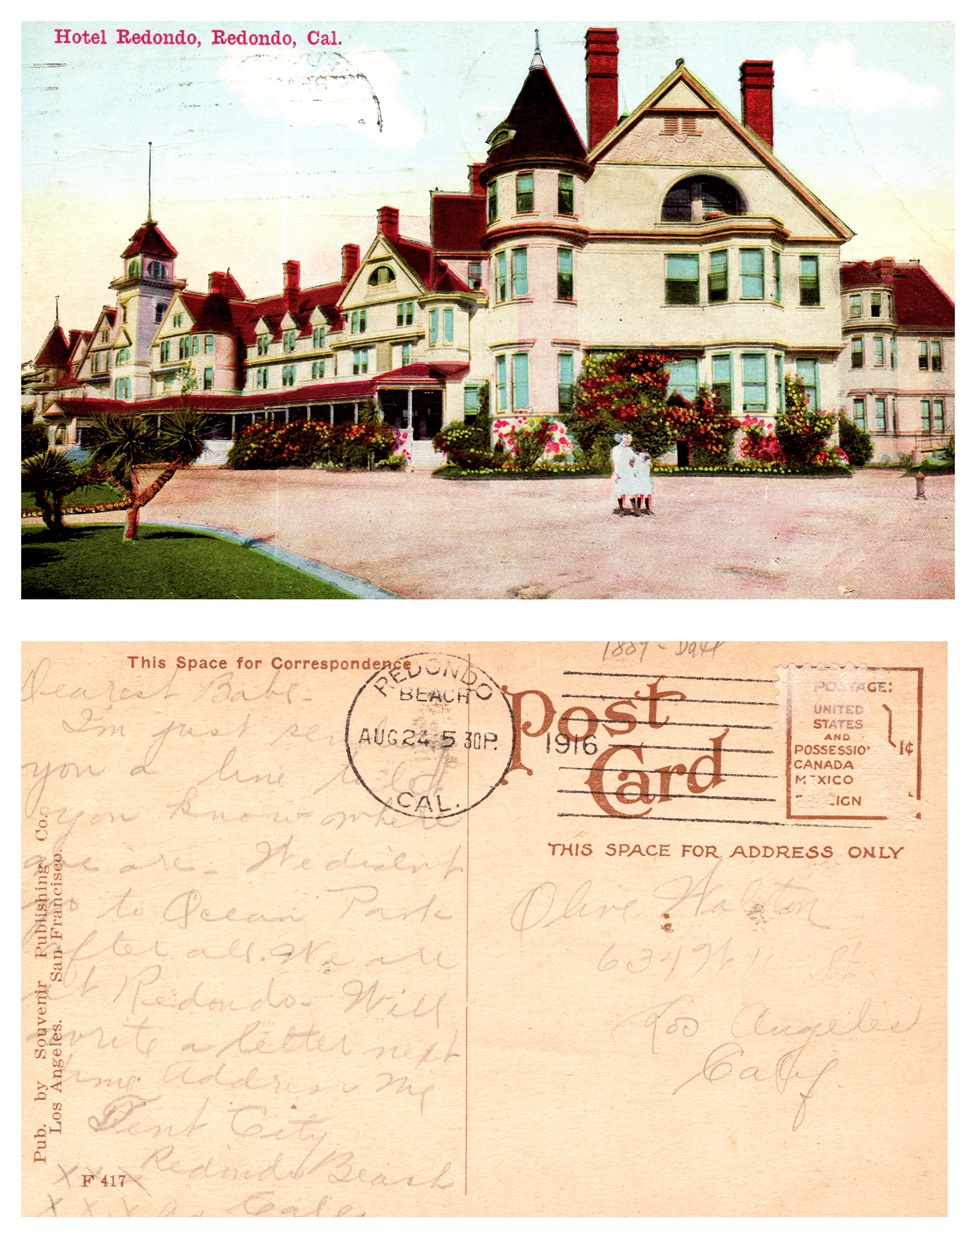 Hotel Redondo, Redondo, Cal.
This Space for Correspondence
Dearest Babe-
I'm just
you a line
you know where
we are. We didn't
go to Ocean Park
after all. We are
at Redondo. Will
write a letter next
time Address Me
Tent City
Redondo Beach
Cal
F 417
Pub. by Souvenir Publishing Co.
Los Angeles. San Francisco.
REDONDO
BEACH
AUG 24 5 30P.
1916
CAL.
1889 -
Post
Card
POSTAGE:
UNITED
STATES
AND
POSSESSIO
CANADA
MEXICO
IGN
1¢
THIS SPACE FOR ADDRESS ONLY
Olive Walton
634 W
Los Angeles
Calif